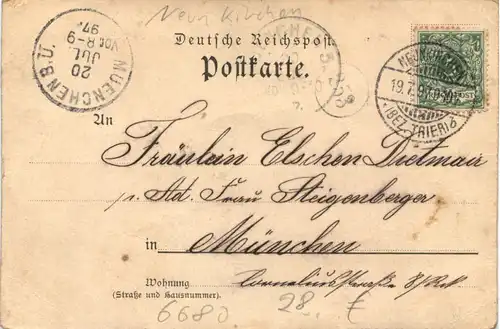 Neunkirchen
Deutsche Reichspost
Postkarte.
MUENCHEN B.Ü.
20
JUL.
VOR 8-9
97
NEUNKIRCHEN
19.7.97
(BEZ. TRIER)
An
Fräulein Elschen Dietmair
p. Ad. Frau Steigenberger
in München
Wohnung Corneliusstraße
(Straße und Hausnummer).
6680 28.